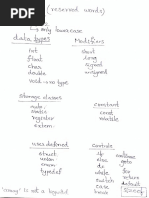 (reserved words)
→ only lowercase
data types Modifiers
int short
float long
char signed
double unsigned
void → no type
Storage classes
auto constant
static const
register volatile
extern
user defined control
struct if continue
union else goto
enum do
typedef while for
switch return
case default
break
'array' is not a keyword